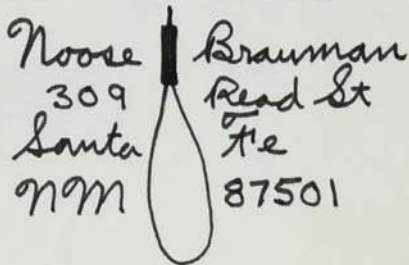 Noose Brauman
309 Read St
Santa Fe
NM 87501